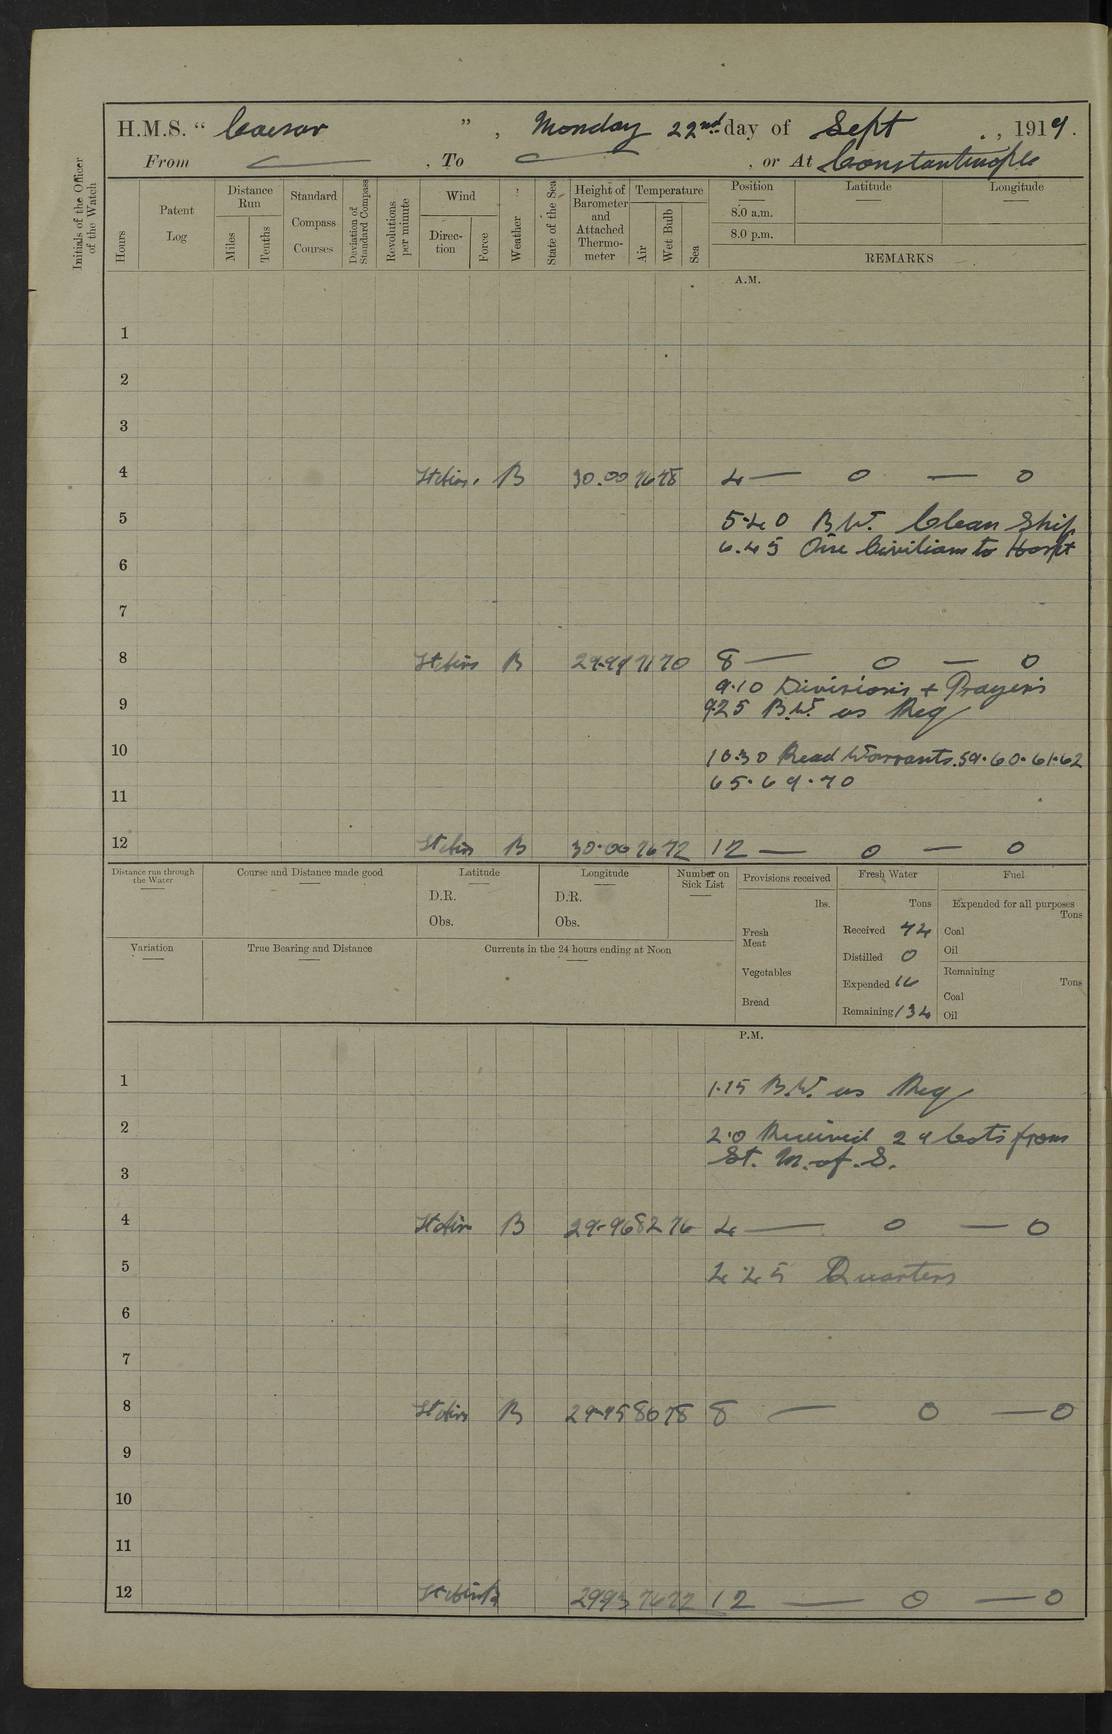 H.M.S. “ Caesar ” , Monday 22nd day of Sept , 1919.
From — . To — , or At Constantinople
Initials of the Officer of the Watch
Hours
Patent Log
Distance Run
Miles
Tenths
Standard Compass Courses
Deviation of Standard Compass
Revolutions per minute
Wind
Direction
Force
Weather
State of the Sea
Height of Barometer and Attached Thermometer
Temperature
Air
Wet Bulb
Sea
Position Latitude Longitude
8.0 a.m.
8.0 p.m.
REMARKS
A.M.
1
2
3
4 B 30.00 76 78 4 — 0 — 0
5 5.40 B.W. Clean Ship
6.45 One Civilian to Hospt
6
7
8 B 29.99 71 70 8 — 0 — 0
9.10 Divisions + Prayers
9 9.25 B.W. as Req
10 10.30 Read Warrants. 59. 60. 61. 62
65. 69. 70
11
12 B 30.00 76 72 12 — 0 — 0
Distance run through the Water
Course and Distance made good
Latitude
D.R.
Obs.
Longitude
D.R.
Obs.
Number on Sick List
Variation
True Bearing and Distance
Currents in the 24 hours ending at Noon
Provisions received
lbs.
Fresh Meat
Vegetables
Bread
Fresh Water
Tons
Received
Distilled 0
Expended 16
Remaining 134
Fuel
Expended for all purposes
Tons
Coal
Oil
Remaining
Tons
Coal
Oil
P.M.
1 1.15 B.W. as Req
2 2.0 Received 29 from
St. M. of. S.
3
4 B 29.96 82 76 4 — 0 — 0
5 4.45 Quarters
6
7
8 B 29.95 80 78 8 — 0 — 0
9
10
11
12 B 29 93 76 72 12 — 0 — 0